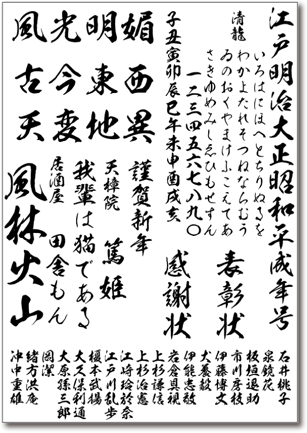 江戸明治大正昭和平成年号
清龍
いろはにほへとちりぬるを
わかよたれそつねならむう
ゐのおくやまけふこえてあ
さきゆめみしゑひもせすん
一二三四五六七八九〇
子丑寅卯辰巳午未申酉戌亥
表彰状
感謝状
媚西異
明東地
光今変
風古天
謹賀新年
天樟院 篤姫
我輩は猫である
居酒屋 田舎もん
風林火山
石井桃子
泉鏡花
板垣退助
市川房枝
伊藤博文
犬養毅
伊能忠敬
岩倉具視
上杉謙信
上杉治憲
江崎玲於奈
江戸川乱歩
榎本武揚
大久保利通
大原孫三郎
岡潔
緒方洪庵
沖中重雄